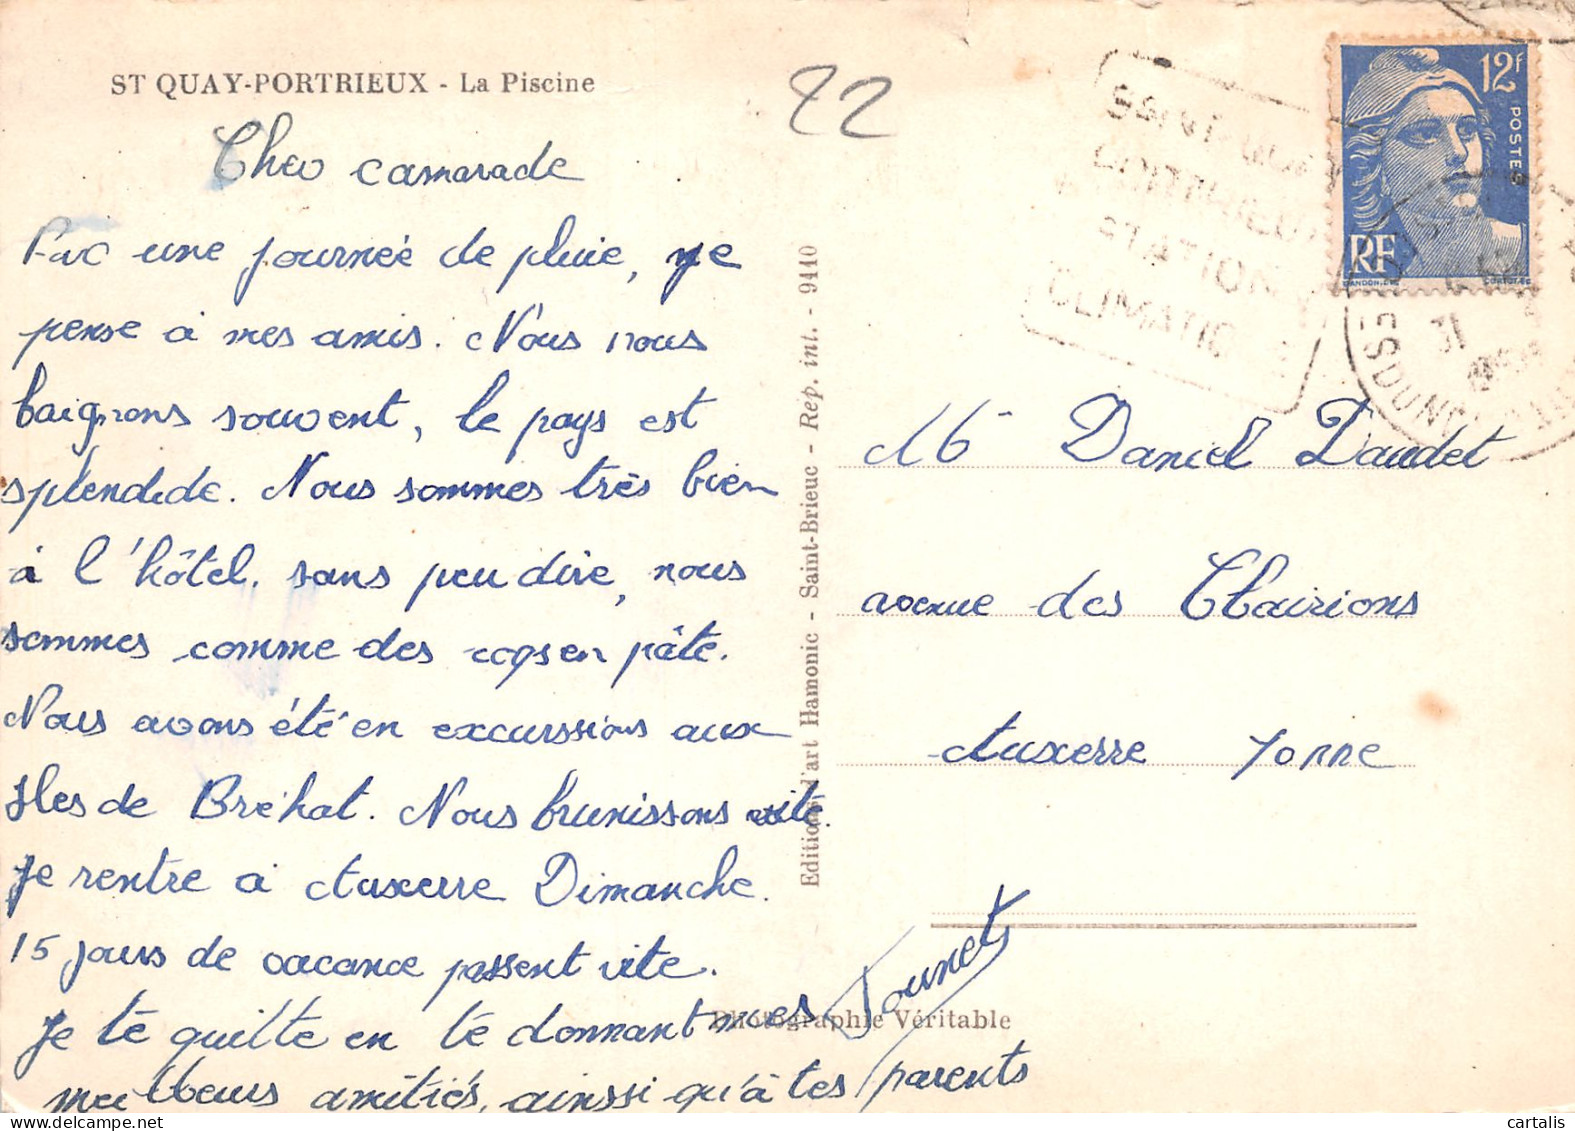 ST QUAY-PORTRIEUX - La Piscine
22
Cher camarade
Par une journée de pluie, je
pense à mes amis. Nous nous
baignons souvent, le pays est
splendide. Nous sommes très bien
à l'hôtel, sans peu dire, nous
sommes comme des coqs en pâte.
Nous avons été en excurssions aux
Iles de Bréhat. Nous brunissons vite.
Je rentre à Auxerre Dimanche.
15 jours de vacance passent vite.
Je te quitte en te donnant mes
meilleurs amitiés, ainssi qu'à tes parents
Editions d'art Hamonic - Saint-Brieuc - Rép. int. - 9410
Photographie Véritable
SAINT-QUAY
PORTRIEUX
STATION
CLIMATIQUE
12f
POSTES
RF
GANDON, DEL
31
Mr Daniel Daudet
avenue des Clairions
Auxerre Yonne